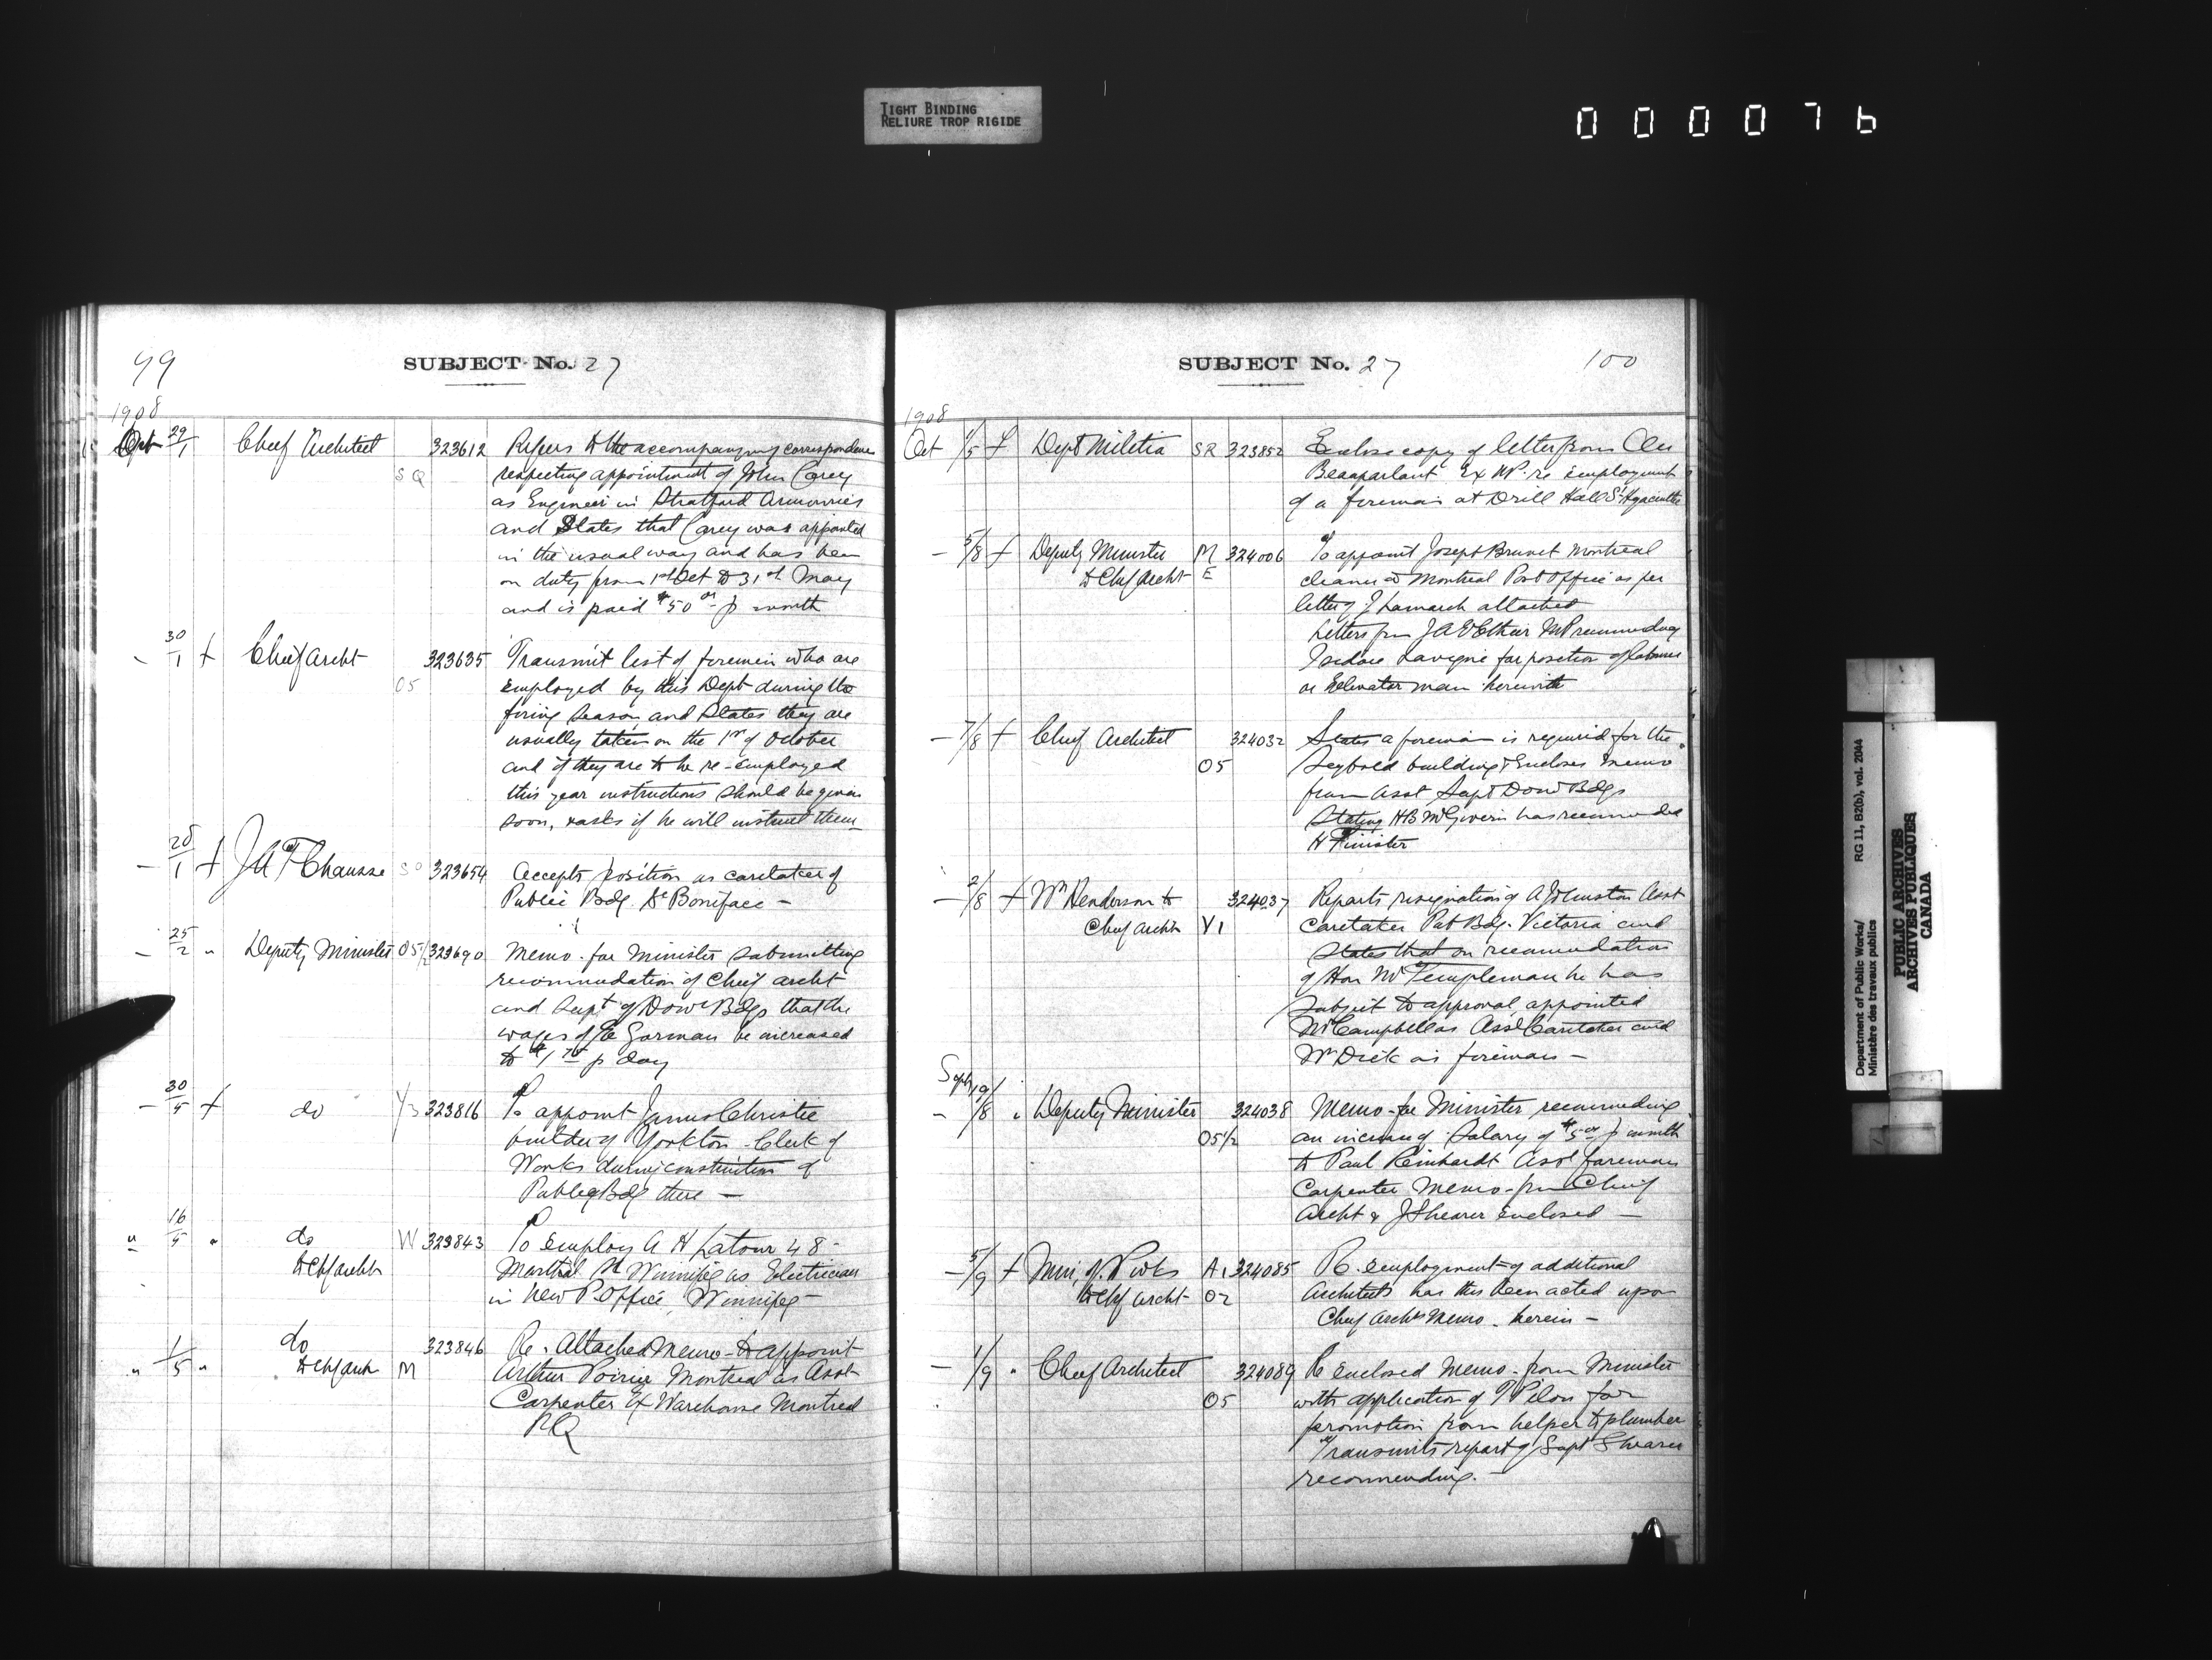 TIGHT BINDING
RELIURE TROP RIGIDE
000076
99
SUBJECT No. 27
1908
Oct 29/1 Chief Architect SQ 323612 Refers to the accompanying correspondence
respecting appointment of John Carey
as Engineer in Stratford Armouries
and States that Carey was appointed
in the usual way and has been
on duty from 1st Oct to 31st May
and is paid $50 00 p month
- 30/1 + Chief Archt O5 323635 Transmit list of firemen who are
employed by this Dept during the
firing season and States they are
usually taken on the 1st of October
and if they are to be re-employed
this year instructions should be given
soon, & asks if he will instruct them
- 28/1 + J A T Chausse SO 323654 Accepts position as caretaker of
Public Bdg. St Boniface -
- 25/2 " Deputy Minister O5 1/2 323690 Memo. for Minister submitting
recommendation of Chief archt
and Supt of Dom Bdgs that the
wages of E Gorman be increased
to $1 75 p day
- 30/5 + do Y3 323816 To appoint James Christie
builder of Yorkton Clerk of
Works during construction of
Public Bdg there -
" 16/5 " do W 323843 To employ A H Latour 48
St Winnipeg as Electrician
to Chf archt
in New P. Office, Winnipeg -
" 1/5 " do 323846 Re. Attached Memo - to appoint
to Chf arch M Arthur Poirier Montreal as Asst
Carpenter Ex Warehouse Montreal
PQ
SUBJECT No. 27
100
1908
Oct 1/5 + Dept Militia SR 323852 Enclose copy of letter from
Beauparlant Ex MP. re employment
of a foreman at Drill Hall St Hyacinthe
- 5/8 + Deputy Minister M 324006 To appoint Joseph Brunet Montreal
to Chf Archt E cleaner Montreal Post Office as per
letter of J Lamarch attached
Letters from J A Ethier MP recommending
Isidore Lavigne for position of labourer
or Elevator man herewith
- 7/8 + Chief Architect 324032 States a fireman is required for the
O5 Seybold building & Encloses Memo
from Asst Supt Dom Bdgs
Stating HB McGiverin has recommended
H
- 2/8 + Wm Henderson to 324037 Reports resignation of A Johnston Asst
Chief Archt Y1 Caretaker Pub Bdg. Victoria and
States that on recommendation
of Hon Mr Templeman he has
subject to approval appointed
Mr Campbell as Asst Caretaker and
Wm Dick as fireman -
Sept
- 19/8 " Deputy Minister 324038 Memo - for Minister recommending
O5 1/2 an increase of Salary of $5 00 p month
to Paul Reinhardt Asst foreman
Carpenter Memo - from Chief
Archt & J Shearer Enclosed -
- 5/9 + Min, of P. Wks A1 324085 Re. employment of additional
to Chf Archt O2 Architects has this been acted upon
Chief Archts Memo. herein -
- 1/9 " Chief Architect 324089 Re enclosed Memo - from Minister
O5 with application of P Pilon for
promotion from helper to plumber
Transmits report of Supt Shearer
recommending. -
Department of Public Works/
Ministère des travaux publics
RG 11, B2(b), vol. 2044
PUBLIC ARCHIVES
ARCHIVES PUBLIQUES
CANADA